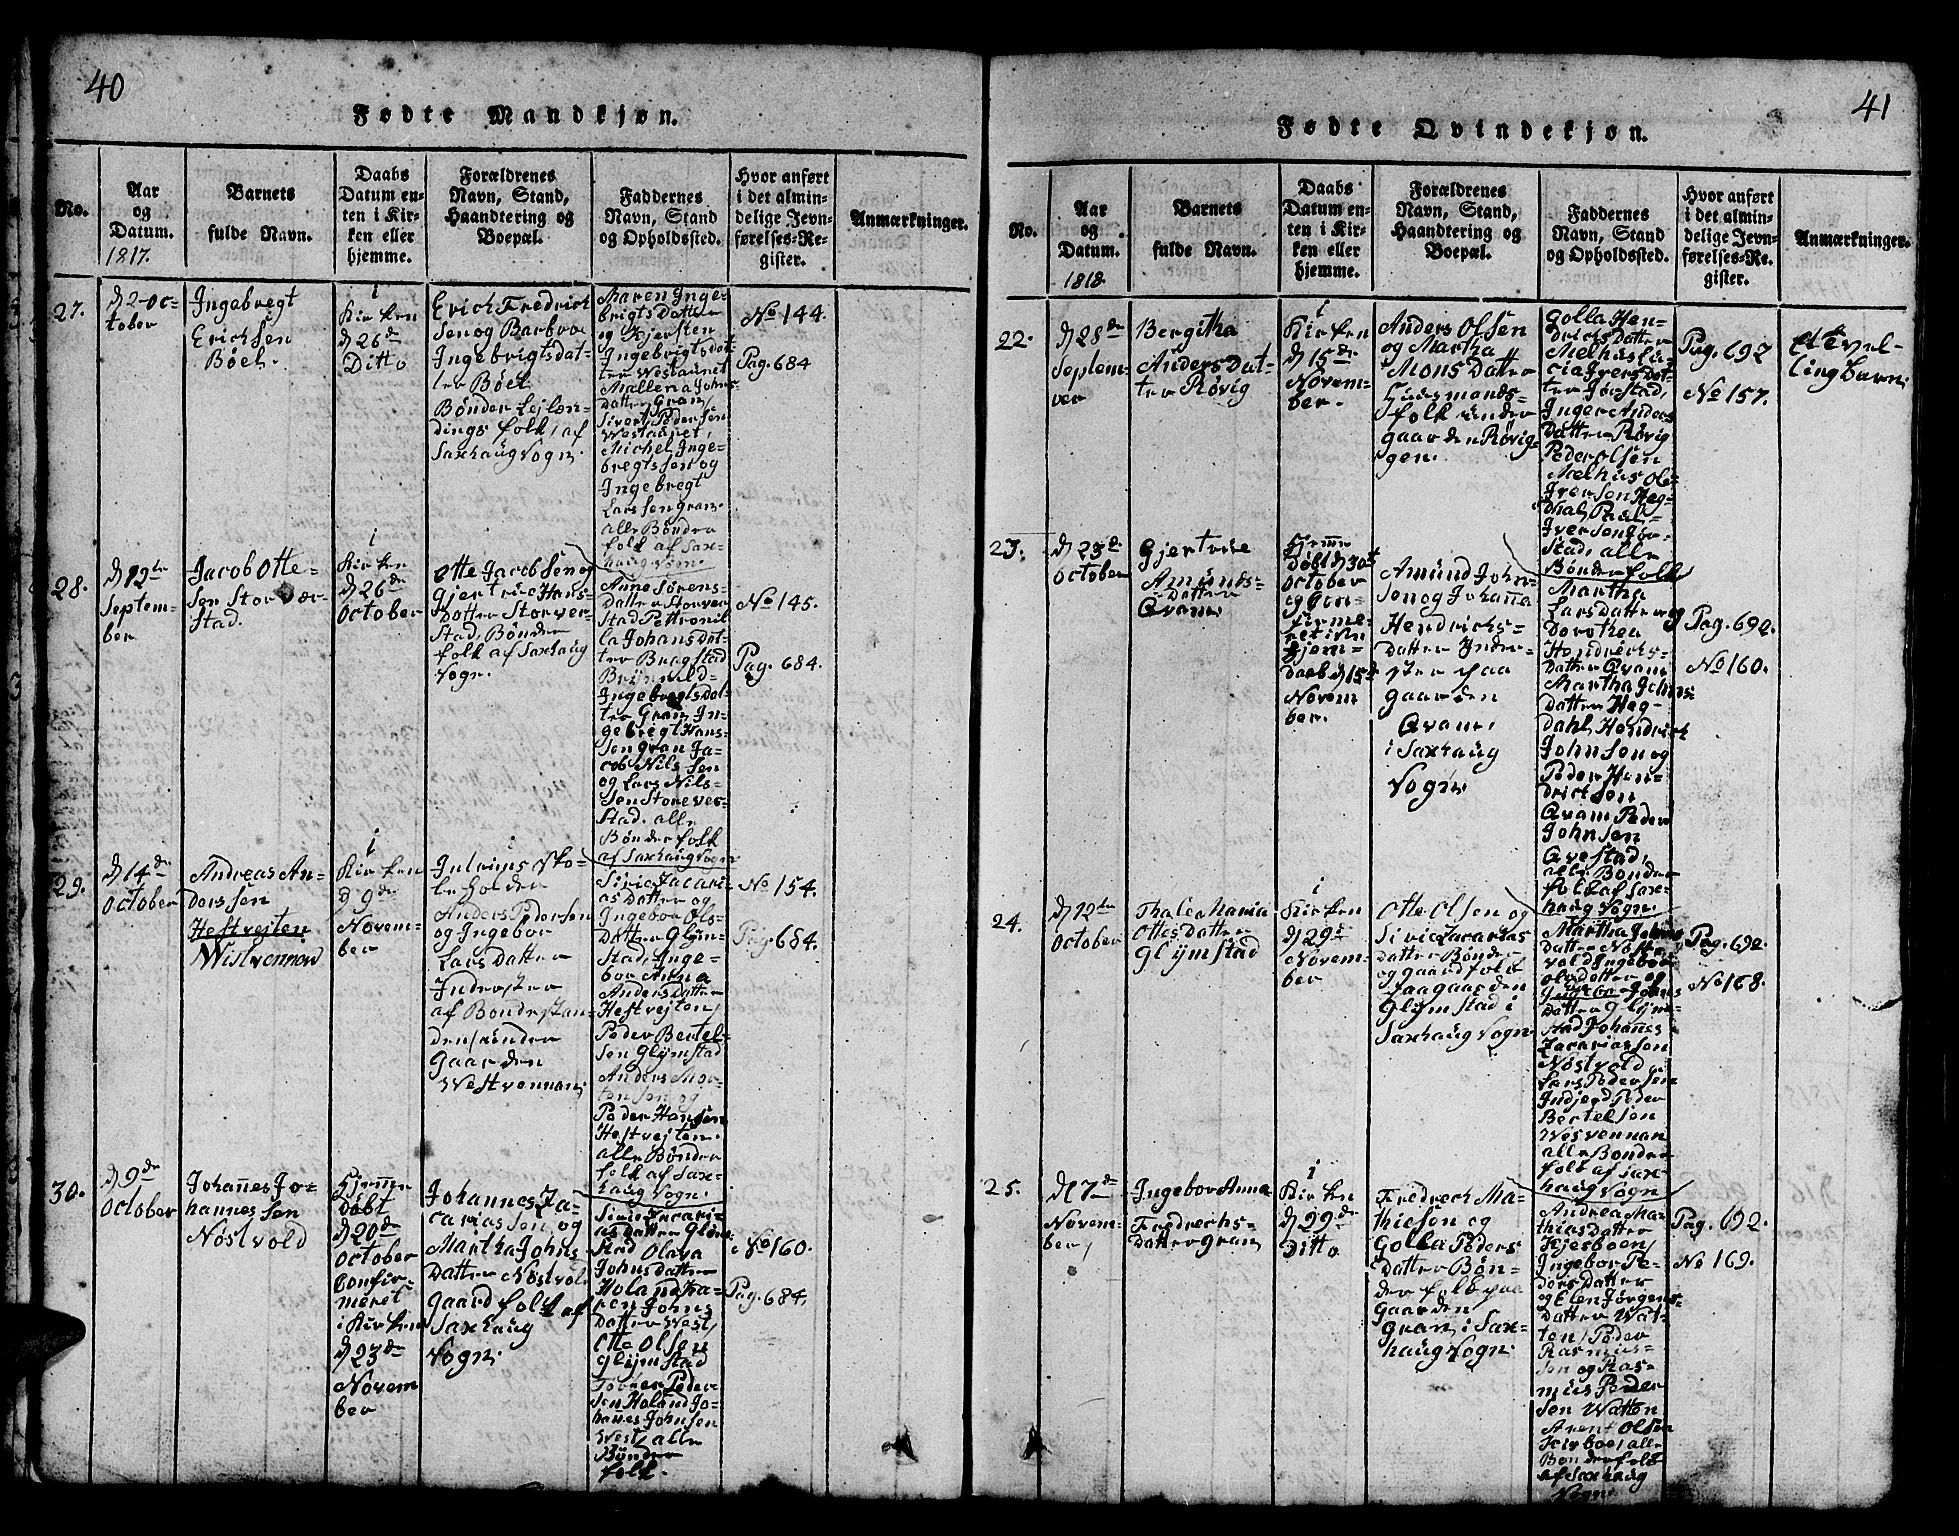 40
Fødte Mandkjøn.
No.
Aar
og
Datum.
1817.
Barnets
fulde Navn.
Daabs
Datum en-
ten i Kir-
ken eller
hjemme.
Forældrenes
Navn, Stand,
Haandtering og
Boepæl.
Faddernes
Navn, Stand
og Opholdssted.
Hvor anført
i det almin-
delige Jevn-
førelses-Re-
gister.
Anmærkninger.
27.
d 2 Oc-
tober
Ingebregt
Erichsen
Bøel.
i
Kirken
d 26de
Ditto
Erich Fredrich
Sen og Barbroe
Ingebrigtsdat-
ter Bøel
Bønder Lejlæn-
dings folk, af
Saxhaug Sogn.
Maren Inge-
brigts Datter
og Kjersten
Ingebrigtsdat-
ter Westaunet
Mallena Johns-
Datter Gran,
Sivert Pedersen
Westaunet,
Michel Inge-
bregtssen og
Ingebregt
Larssen gran.
alle Bønder
folk af Sax-
haug Sogn.
No 144.
Pag. 684
28.
d 12te
Septem-
ber
Jacob Otte-
Sen Storvær-
Stad.
i
Kirken
d 26de
October
Otte Jacobsen og
Gjertrue Hans-
Datter Storver-
Stad, Bønder
folk af Saxhaug
Sogn.
Anne Sørens-
Datter Storver
Stad Pettronil
la Johansdat-
ter Bragstad
Brynnild-
Ingebregtsdat-
ter Gran, In-
gebregt Hans-
Sen gran Ja-
cob Nilssen
og Lars Nils-
Sen Storever-
Stad. alle
Bønder folk
af Saxhaug Sogn
No 145.
Pag. 684.
29.
d 14de
October
Andreas An-
derssen
Hestvejten
Wistvennen
i
Kirken
d 9de
Novem-
ber
Anders Pedersen
og Ingebor
Lars Datter
Inderster
af Bondestan-
den under
Gaarden
Westvennan.
Siri Zacari-
as Datter og
Ingebor Ols-
Datter Glÿm-
Stad, Inge-
bor Anna
Anders Datter
Hestvejten,
Peder Bertel-
Sen Glÿmstad
Anders Mor-
tensen og
Peder Hansen
Hestvejten.
alle Bønder
folk af Sax-
haug Sogn.
No 154.
Pag. 684.
30.
d 9de
October
Johannes Jo-
hannessen
Nøstvold
Hjemme
Døbt
d 20de
October
Confir-
meret
i Kirken
d 23de
Novem
ber
Johannes Za-
cariassen og
Martha Johns
Datter Nøstvold
Gaardfolk af
Saxhaug
Sogn.
Siri Zacari-
as Datter Glÿm
Stad Olava
Johnsdatter
Holand Ka-
ren Johns
Datter West,
Otte Olsen
Glÿmstad
Peder-
Sen Holand Jo-
hannes Johnsen
West, alle
Bønder
folk.
No 160.
Pag. 684.
41
Fødte Qvindekjøn.
No.
Aar
og
Datum.
1818.
Barnets
fulde Navn.
Daabs
Datum en-
ten i Kir-
ken eller
hjemme.
Forældrenes
Navn, Stand,
Haandtering og
Boepæl.
Faddernes
Navn, Stand
og Opholdssted.
Hvor anført
i det almin-
delige Jevn-
førelses-Re-
gister.
Anmærkninger.
22.
d 28de
Septem-
ber
Bergitha
Anders Dat-
ter Røvig
i
Kirken
d 15de
Novem-
ber.
Anders Olsen
og Martha
Mons Datter
Huusmands-
folk under
gaarden Røvig-
gen.
Golla Hen-
drichs Datter
Melhus Lu-
cia Ivers Dat-
ter Jørstad,
Inger Anders
Datter Røvig
Peder Olsen
Melhus Ole
Iversen Heg-
dhal, Paul
Iversen Jør-
Stad, alle
Bønderfolk
Pag. 692
No 157.
Et Tvel-
ling barn.
23.
d 23de
October
Gjertrue
Amunds-
Datter
Qvam.
Hjemme
Døbt d 30t
October
og Con-
firme-
ret i
Hjem-
daab d 15de
Novem
ber.
Amund John-
Sen og Johanna
Hendrichs-
Datter Inder-
ster paa
gaarden
Qvam,
i Saxhaug
Sogn.
Martha
Lars Datter og
Dorothea
Hendrechs-
Datter Qvam
Martha Johns
Datter Heg-
Dahl, Hendrich
Johnsen og
Peder Hen-
drichsen
Qvam Peder
Johnsen
Qvestad,
alle Bønder
folk af Sax-
haug Sogn.
Pag. 692.
No 160.
24.
d 12te
October
Thalea Maria
Ottes Datter
Glÿmstad
i
Kirken
d 29de
Novem-
ber
Otte Olsen og
Siri Zacarias
datter Bønder
og Gaardfolk
paa gaarden
Glÿmstad i
Saxhaug Sogn
Martha Johns
Datter Nøst-
vold Ingebor
ols Datter og
Johns
Datter Glÿm-
stad Johannes
Zacariassen
Nøstvold,
Lars Pedersen
Indjerd Peder
Bertelsen
Wesvennan
alle Bønder
folk af Sax-
haug Sogn
Pag. 692.
No 168.
25.
d 7de
Novem-
ber,
Ingebor Anna
Fredrechs-
Datter gran,
i
Kirken
d 29de
Ditto
Fredrech Ma-
thiesen og
Golla Peders
Datter Bøn-
der folk paa
Gaarden
Gran, i Sax-
haug Sogn.
Andrea Ma-
thias Datter
Kjesboen,
Ingebor Pe-
ders Datter
og Elen Jørgens-
Datter Wat-
ten, Peder
Rasmus-
Sen og Ras-
mus Peder
Sen Watten
Arent Olsen
Kirboe, alle
Bønderfolk
af Saxhaug
Sogn.
Pag. 692.
No 169.